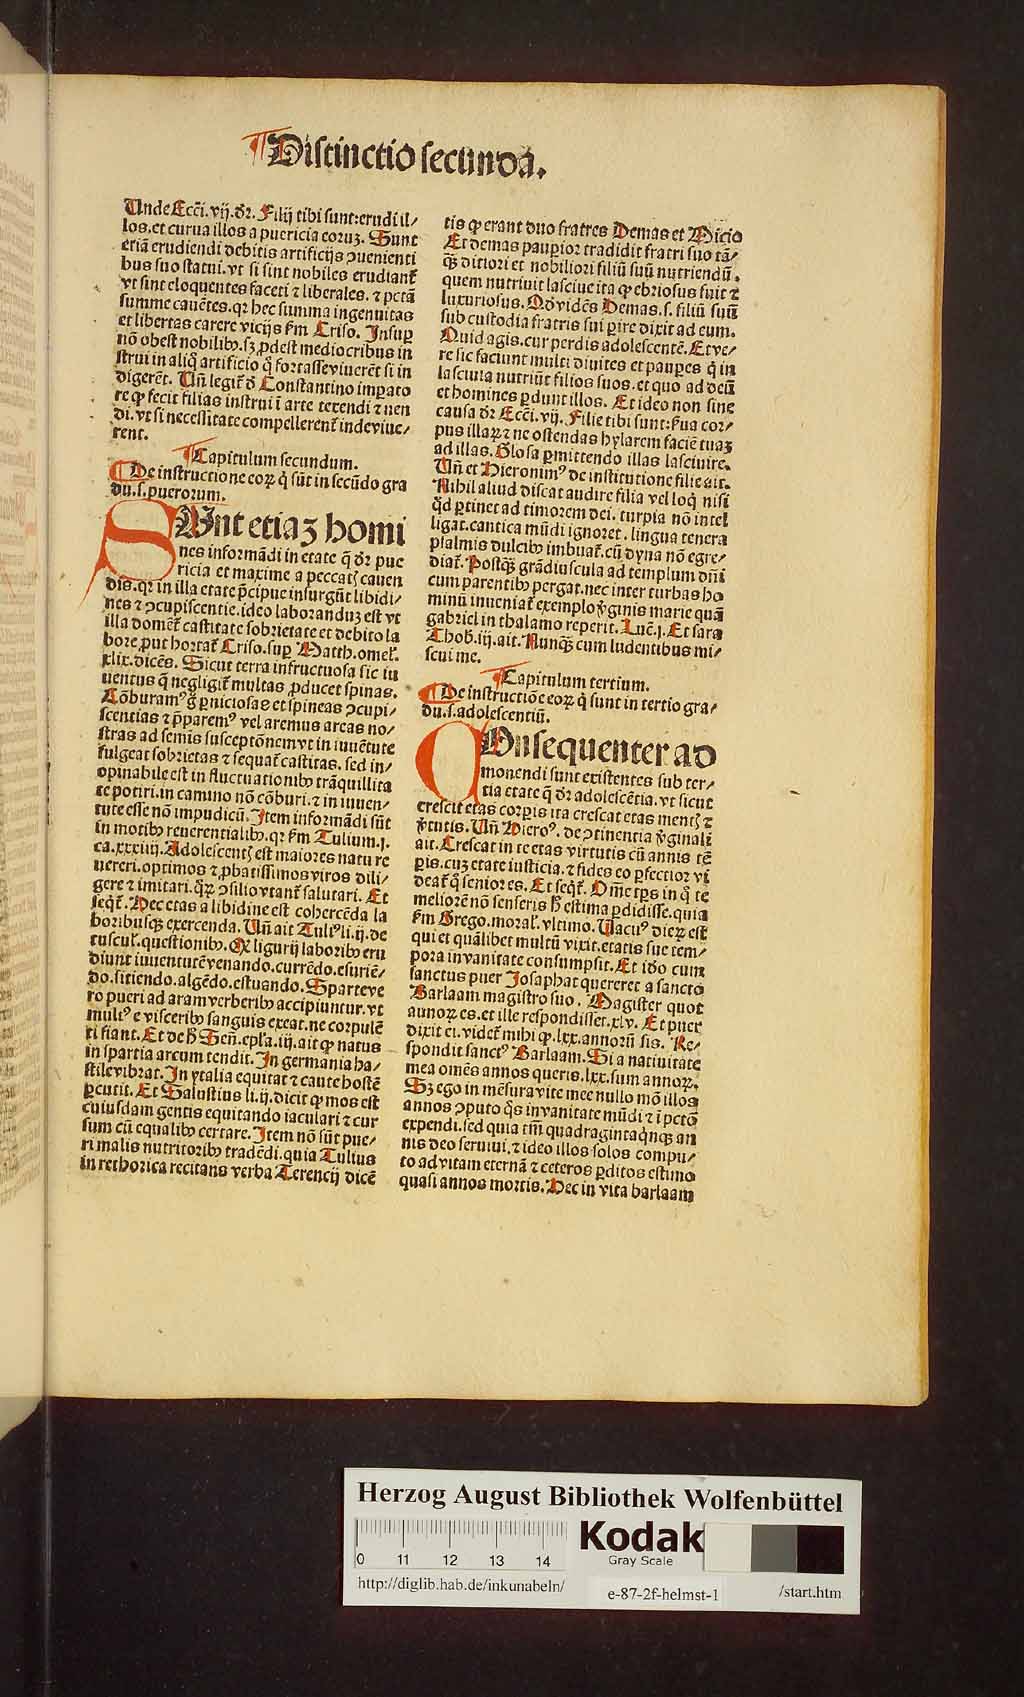 Distinctio secunda.
Unde Ecci̅. vij. dr̅. Filij tibi sunt: erudi il/
los. et curua illos a puericia eoruꝫ. Sunt
etia̅ erudiendi debitis artificijs ꝯuenienti
bus suo statui. vt si sint nobiles erudiant᷑
vt sint eloquentes faceti ⁊ liberales. ⁊ pctā
summe caue̅tes. qꝛ hec summa ingenuitas
et libertas carere vicijs ẜm Criso. Insuꝑ
no̅ obest nobilibꝰ. sꝫ ꝓdest mediocribus in
strui in aliq̅ artificio q̅ fortasse viuere̅t si in
digere̅t. Un̅ legit᷑ d̅ Constantino impato
re ꝙ fecit filias instrui i̅ arte texendi ⁊ nen
di. vt si necessitate compellerent᷑ inde viue/
rent.
Capitulum secundum.
De instructione eoꝝ q̅ su̅t in secu̅do gra
du. s. puerorum.
SUnt etiaꝫ homi
nes informa̅di in etate q̅ dr̅ pue
ricia et maxime a peccatꝭ cauen
dis. qꝛ in illa etate p̅cipue insurgu̅t libidi/
nes ⁊ ꝯcupiscentie. ideo laboranduꝫ est vt
illa domet᷑ castitate sobrietate et debito la
bore. ꝓut hortat᷑ Criso. suꝑ Matth. omel̅.
xlix. dice̅s. Sicut terra infructuosa sic iu
uentus q̅ negligit᷑ multas ꝓducet spinas.
Co̅buramꝰ g̅ ꝑniciosas et spineas ꝯcupi/
scentias ⁊ p̅paremꝰ vel aremus areas no/
stras ad semis suscepto̅nem vt in iuue̅tute
fulgeat sobrietas ⁊ sequat᷑ castitas. sed in/
opinabile est in fluctuationibꝰ tra̅quillita
te potiri. in camino no̅ co̅buri. ⁊ in iuuen/
tute esse no̅ impudicu̅. Item informa̅di su̅t
in motibꝰ reuerentialibꝰ. qꝛ ẜm Tulium. j.
ca. xxxiiij. Adolescentꝭ est maiores natu re
uereri. optimos ⁊ ꝓbatissimos viros dili/
gere ⁊ imitari. q̅ꝝ ꝯsilio vtant᷑ salutari. Et
seqt᷑. Hec etas a libidine est coherce̅da la
boribusqꝫ exercenda. Un̅ ait Tulꝰ li. ij. de
tuscul̅. questionibꝰ. Qꝛ ligurij laboribꝰ eru
diunt iuuentute̅ venando. curre̅do. esurie̅/
do. sitiendo. alge̅do. estuando. Sparte ve
ro pueri ad aram verberibꝰ accipiuntur. vt
multꝰ e visceribꝰ sanguis exeat. ne corpule̅
ti fiant. Et de h̅ Sen̅. epl̅a. iij. ait ꝙ natus
in spartia arcum tendit. In germania ha/
stile vibrat. In ytalia equitat ⁊ caute hoste̅
ꝑcutit. Et Salustius li. ij. dicit ꝙ mos est
cuiusdam gentis equitando iaculari ⁊ cur
sum cu̅ equalibꝰ certare. Item no̅ su̅t pue/
ri malis nutritoribꝰ trade̅di. quia Tulius
in rethorica recitans verba Terencij dice̅
tis ꝙ erant duo fratres Demas et Micio
Et demas pauꝑior tradidit fratri suo ta̅/
q̅ꝫ ditiori et nobiliori filiu̅ suu̅ nutriendu̅.
quem nutriuit lasciue ita ꝙ ebriosus fuit ⁊
luxuriosus. Qd̅ vide̅s Demas. s. filiu̅ suu̅
sub custodia fratris sui ꝑire dixit ad eum.
Quid agis. cur perdis adolescente̅. Et ve/
re sic faciunt multi diuites et pauꝑes q̅ in
lasciuia nutriu̅t filios suos. et quo ad deu̅
et homines ꝑdunt illos. Et ideo non sine
causa dr̅ Ecci̅. vij. Filie tibi sunt: ẜua cor/
pus illaꝝ ⁊ ne ostendas hylarem facie̅ tuaꝫ
ad illas. Glosa ꝑmittendo illas lasciuire.
Un̅ et Hieronimꝰ de institutione filie ait.
Nihil aliud discat audire filia vel loq̅ nisi
q̅d ꝑtinet ad timorem dei. turpia no̅ intel
ligat. cantica mu̅di ignoret. lingua tenera
psalmis dulcibꝰ imbuat᷑. cu̅ dyna no̅ egre/
diat᷑. Postqꝫ gra̅diuscula ad templum dn̅i
cum parentibꝰ pergat. nec inter turbas ho
minu̅ inueniat᷑ exemplo v̅ginis marie qua̅
gabriel in thalamo reperit. Luc̅. j. Et sara
Thob. iij. ait. Nunqꝫ cum ludentibus mi/
scui me.
Capitulum tertium.
De instructio̅e eoꝝ q̅ sunt in tertio gra/
du. s. adolescentiu̅.
COnsequenter ad
monendi sunt existentes sub ter/
tia etate q̅ dr̅ adolesce̅tia. vt sicut
crescit etas corꝑis ita crescat etas mentꝭ ⁊
v̅tutis. Un̅ Hieroꝰ. de ꝯtinentia v̅ginali̅
ait. Crescat in te etas virtutis cu̅ annis te̅
ꝑis. cuꝫ etate iusticia. ⁊ fides eo ꝑfectior vi
deat᷑ q̅ seniores. Et seqt᷑. Om̅e tp̅s in q̅ te
meliore̅ no̅ senseris h̅ estima ꝑdidisse. quia
ẜm Grego. moral̅. vltimo. Uacuꝰ dieꝝ est
qui et qua̅libet multu̅ vixit. etatis sue tem/
pora in vanitate consumpsit. Et id̅o cum
sanctus puer Josaphat quereret a sancto
Barlaam magistro suo. Magister quot
annoꝝ es. et ille respondisset. xlv. Et puer
dixit ei. videt᷑ mihi ꝙ. lxx. annoru̅ sis. Re/
spondit sanctꝰ Barlaam. Si a natiuitate
mea om̅es annos queris. lxx. sum annoꝝ.
Sꝫ ego in me̅sura vite mee nullo mo̅ illos
annos ꝯputo q̅s in vanitate mu̅di ⁊ i̅ pcto̅
expendi. sed quia tm̅ quadragintaq̅nqꝫ an
nis deo seruiui. ⁊ ideo illos solos compu/
to ad vitam eterna̅ ⁊ ceteros ꝑditos estimo
quasi annos mortis. Hec in vita barlaam
Herzog August Bibliothek Wolfenbüttel
0 11 12 13 14
Kodak
Gray Scale
http://diglib.hab.de/inkunabeln/
e-87-2f-helmst-1
/start.htm